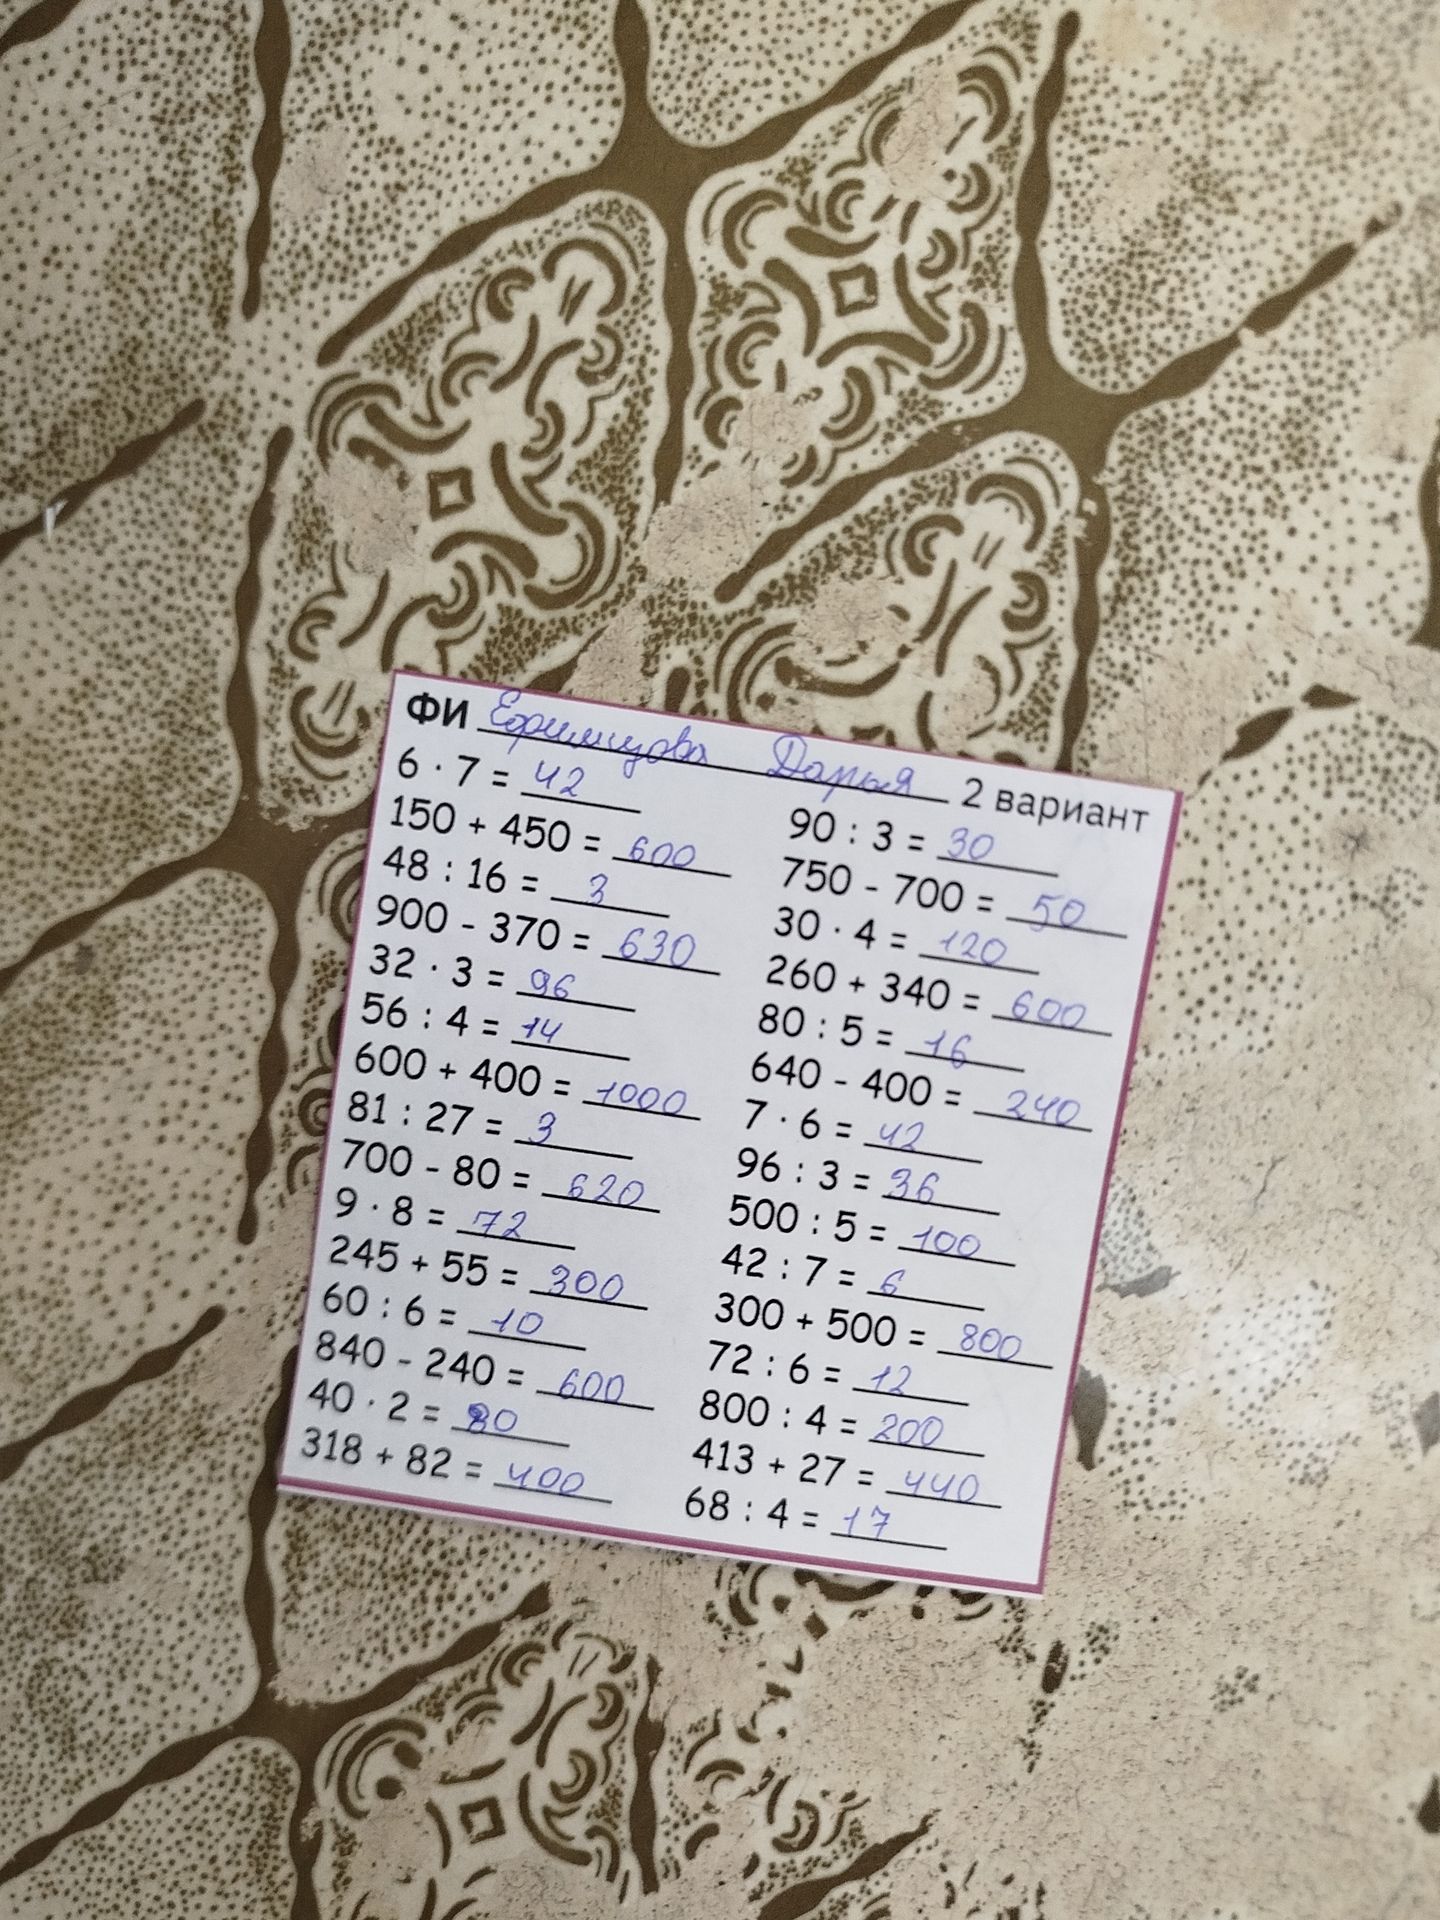 ФИ Ефимцова Дарья 2 вариант
6 · 7 = 42
150 + 450 = 600
48 : 16 = 3
900 - 370 = 630
32 · 3 = 96
56 : 4 = 14
600 + 400 = 1000
81 : 27 = 3
700 - 80 = 620
9 · 8 = 72
245 + 55 = 300
60 : 6 = 10
840 - 240 = 600
40 · 2 = 80
318 + 82 = 400
90 : 3 = 30
750 - 700 = 50
30 · 4 = 120
260 + 340 = 600
80 : 5 = 16
640 - 400 = 240
7 · 6 = 42
96 : 3 = 36
500 : 5 = 100
42 : 7 = 6
300 + 500 = 800
72 : 6 = 12
800 : 4 = 200
413 + 27 = 440
68 : 4 = 17